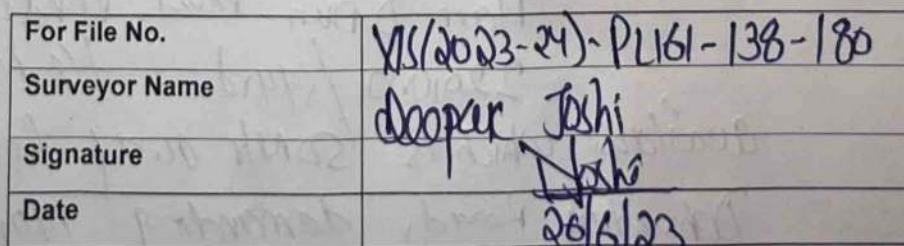 For File No. VIS(2023-24)-PL161-138-180
Surveyor Name Deepak Joshi
Signature Joshi
Date 26/6/23